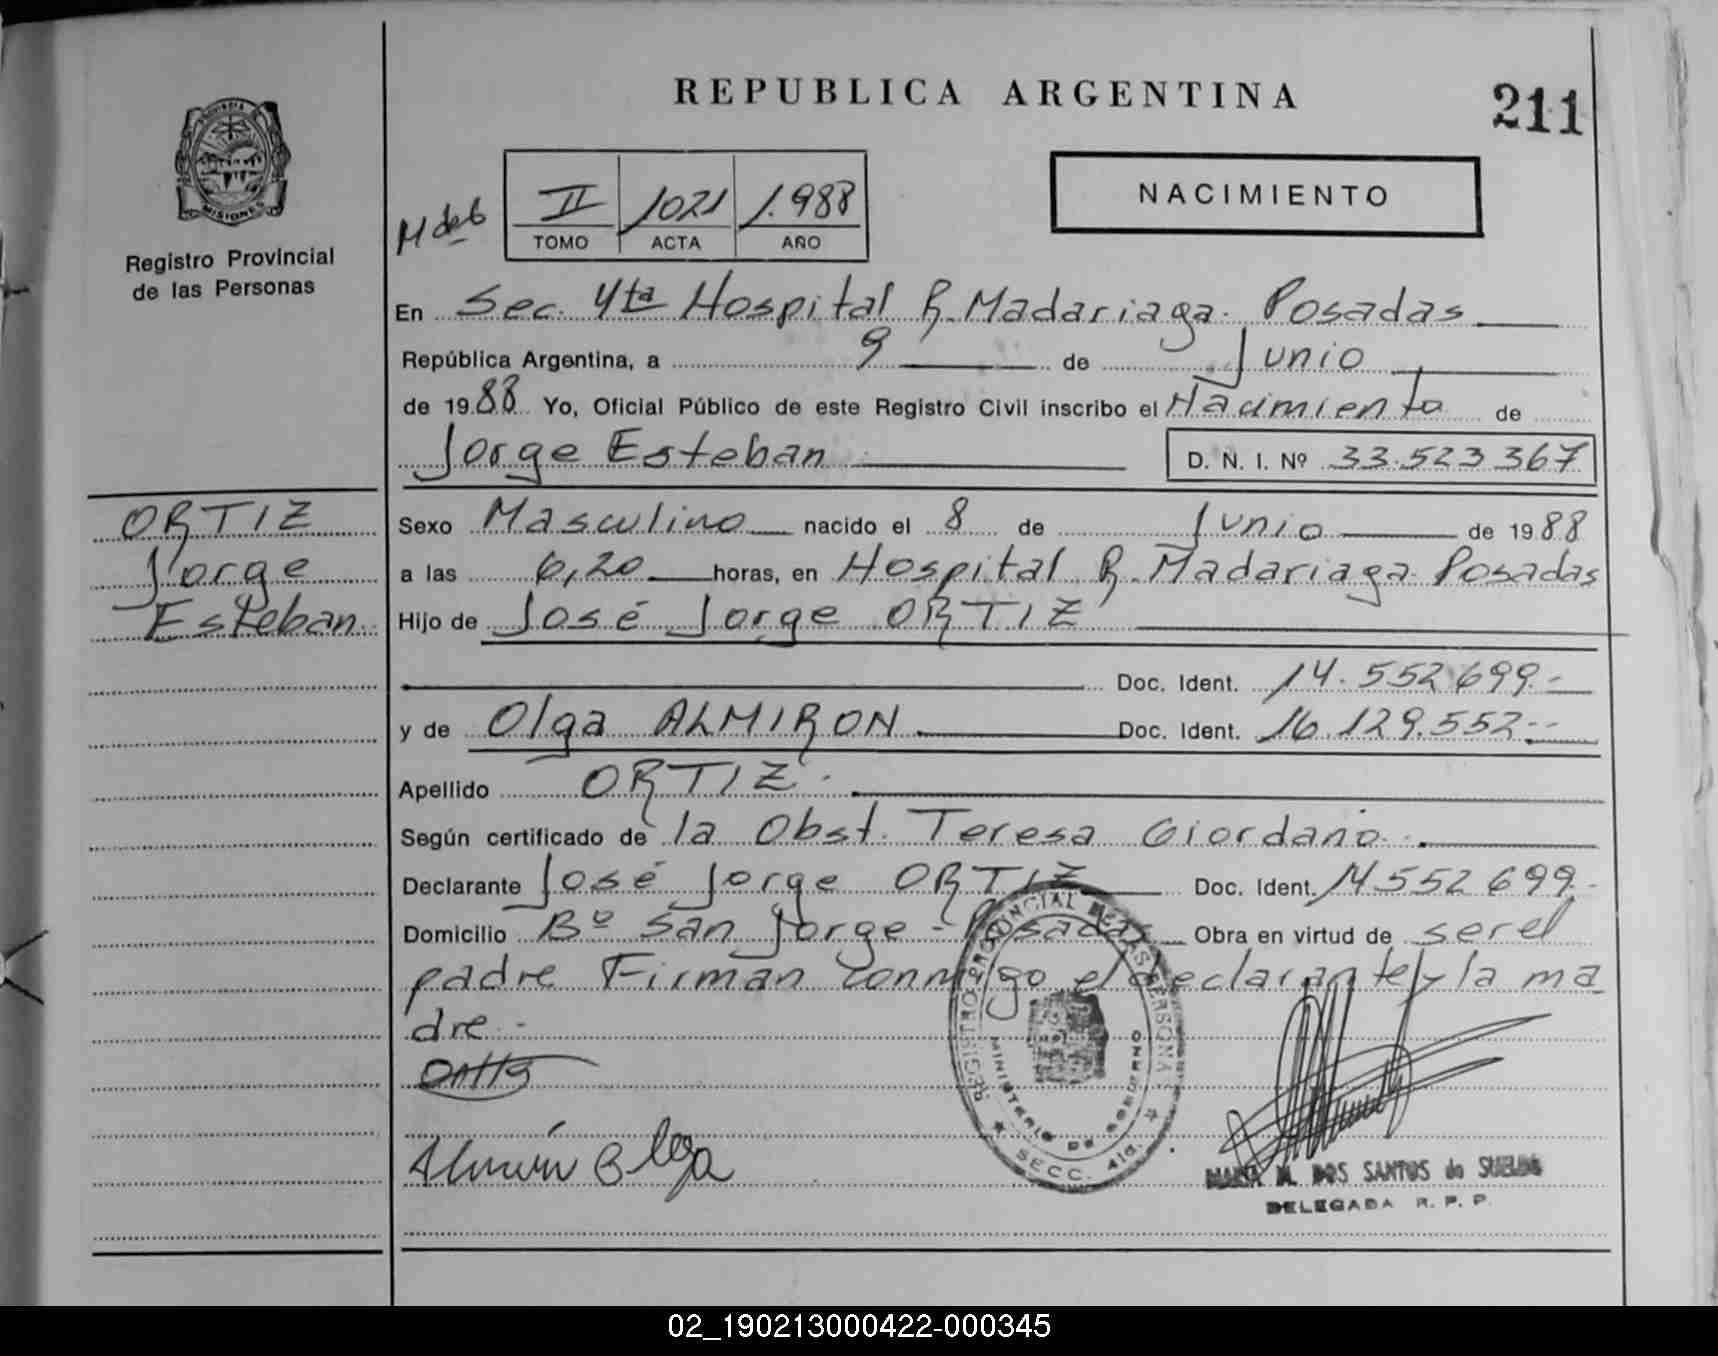 REPUBLICA ARGENTINA
211
PROVINCIA
MISIONES
Registro Provincial
de las Personas
II 1021 1.988
TOMO ACTA AÑO
NACIMIENTO
En Sec. 4ta Hospital R. Madariaga. Posadas
República Argentina, a 9 de Junio
de 1988 Yo, Oficial Público de este Registro Civil inscribo el Nacimiento de
Jorge Esteban D. N. I. Nº 33.523 367
ORTIZ
Jorge
Esteban
Sexo Masculino nacido el 8 de Junio de 1988
a las 6,20 horas, en Hospital R. Madariaga Posadas
Hijo de José Jorge ORTIZ
Doc. Ident. 14.552 699.-
y de Olga ALMIRON Doc. Ident. 16.129.552--
Apellido ORTIZ.
Según certificado de la Obst. Teresa Giordano.
Declarante José Jorge ORTIZ Doc. Ident. 14 552 699.-
Domicilio Bº San Jorge - Posadas Obra en virtud de ser el
padre Firman conmigo el declarante y la ma
dre.-
Almirón Olga
REGISTRO PROVINCIAL DE LAS PERSONAS
MINISTERIO DE GOBIERNO
SECC. 4ta.
MARIA M. DOS SANTOS de SUELDO
DELEGADA R. P. P.
02_190213000422-000345